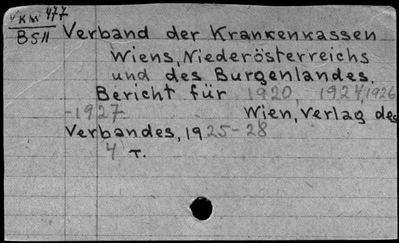 KW 477
BSII
Verband der Krankenkassen
Wiens, Niederösterreichs
und des Burgenlandes.
Bericht für 1920, 1924, 1926
-1927 Wien, Verlag des
Verbandes, 1925-28
4 T.